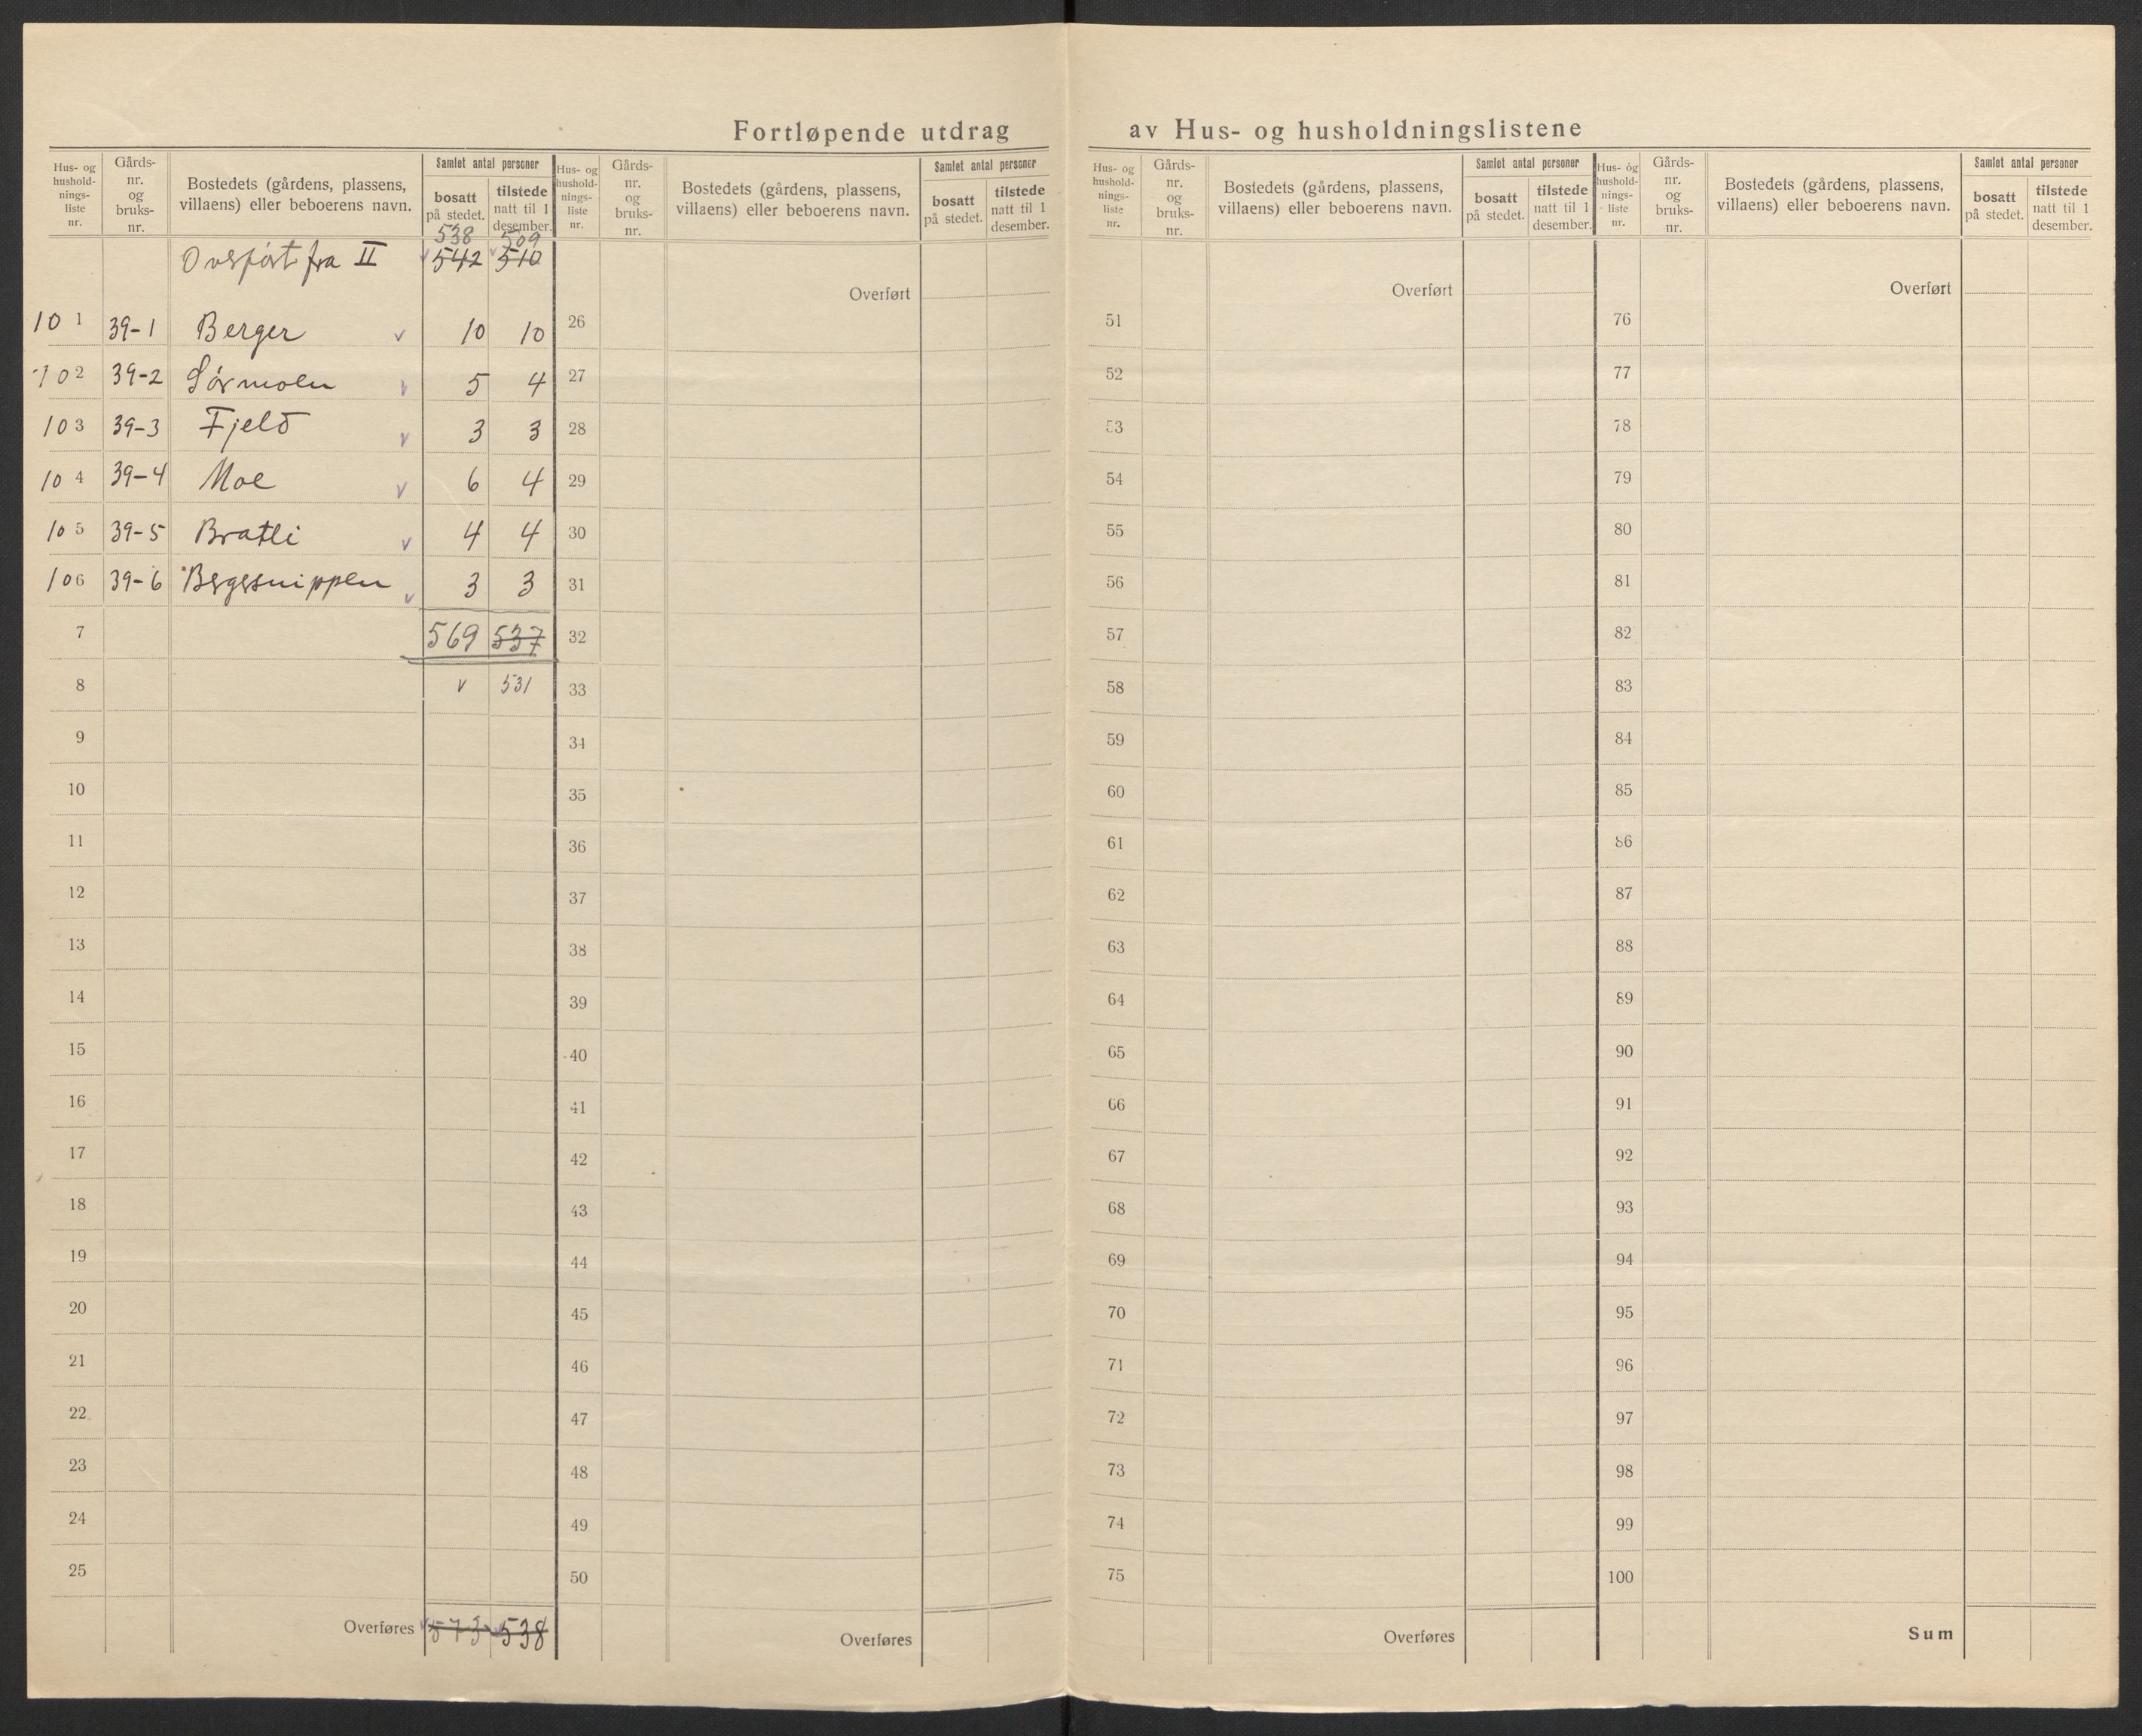 Fortløpende utdrag av Hus- og husholdningslistene
Hus- og hushold-nings-liste nr.
Gårds-nr. og bruks-nr.
Bostedets (gårdens, plassens, villaens) eller beboerens navn.
Samlet antal personer
bosatt på stedet.
tilstede natt til 1 desember.
538 509
Overført fra II 542 510
101 39-1 Berger v 10 10
102 39-2 Sørmoen v 5 4
103 39-3 Fjeld v 3 3
104 39-4 Moe v 6 4
105 39-5 Bratli v 4 4
106 39-6 Bergesnippen v 3 3
7 569 537
8 v 531
9
10
11
12
13
14
15
16
17
18
19
20
21
22
23
24
25
Overføres 573 538
Hus- og hushold-nings-liste nr.
Gårds-nr. og bruks-nr.
Bostedets (gårdens, plassens, villaens) eller beboerens navn.
Samlet antal personer
bosatt på stedet.
tilstede natt til 1 desember.
Overført
26
27
28
29
30
31
32
33
34
35
36
37
38
39
40
41
42
43
44
45
46
47
48
49
50
Overføres
Hus- og hushold-nings-liste nr.
Gårds-nr. og bruks-nr.
Bostedets (gårdens, plassens, villaens) eller beboerens navn.
Samlet antal personer
bosatt på stedet.
tilstede natt til 1 desember.
Overført
51
52
53
54
55
56
57
58
59
60
61
62
63
64
65
66
67
68
69
70
71
72
73
74
75
Overføres
Hus- og hushold-nings-liste nr.
Gårds-nr. og bruks-nr.
Bostedets (gårdens, plassens, villaens) eller beboerens navn.
Samlet antal personer
bosatt på stedet.
tilstede natt til 1 desember.
Overført
76
77
78
79
80
81
82
83
84
85
86
87
88
89
90
91
92
93
94
95
96
97
98
99
100
Sum